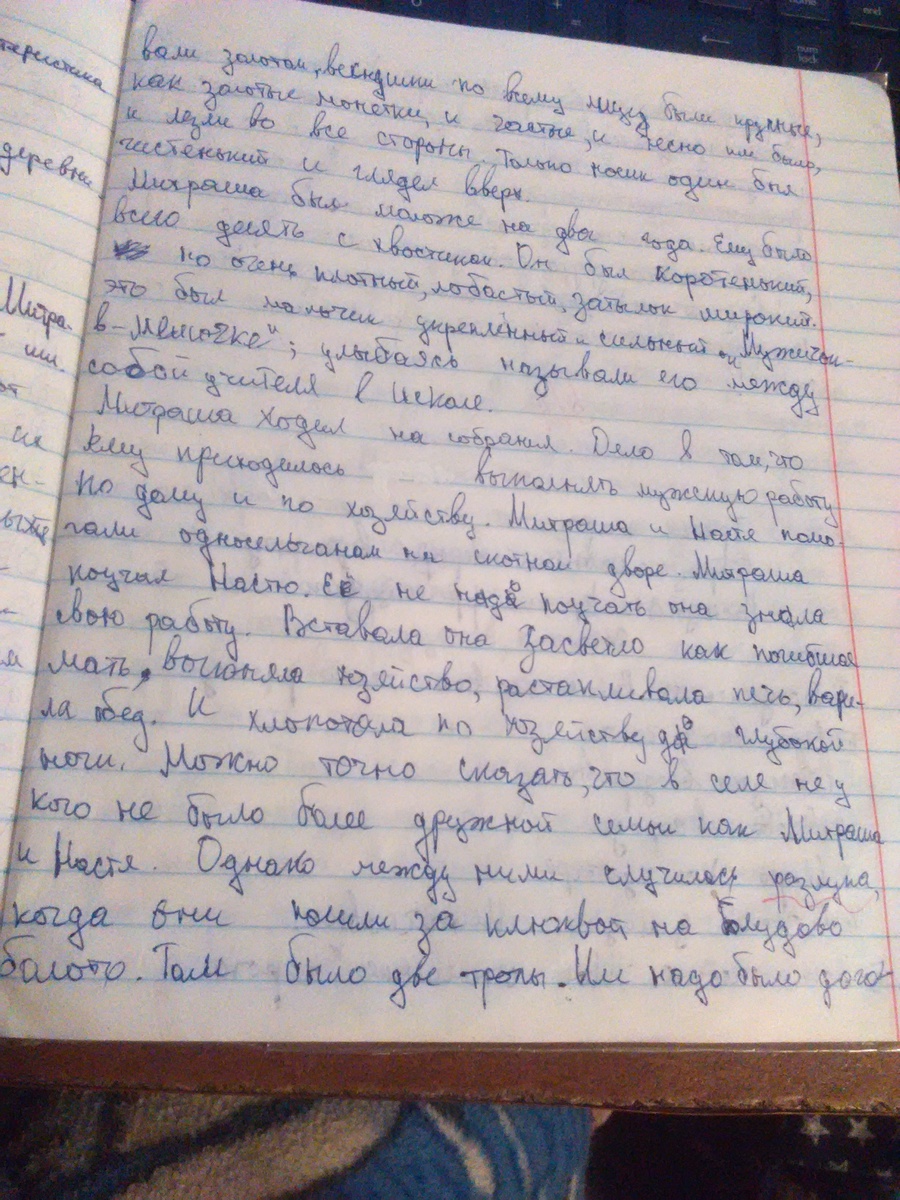 теристика
деревни
Митра-
вали золотом, веснушки по всему лицу были крупные,
как золотые монетки, и частые, и тесно им было,
и лезли во все стороны. Только носик один был
чистенький и глядел вверх.
Митраша был моложе на два года. Ему было
всего десять с хвостиком. Он был коротенький,
но очень плотный, лобастый, затылок широкий.
это был мальчик укреплённый и сильный „Мужичок-
в-мешочке"; улыбаясь называли его между
собой учителя в школе.
Митраша ходил на собрания. Дело в том, что
ему приходилось выполнять мужскую работу
по дому и по хозяйству. Митраша и Настя помо-
гали односельчанам на скотном дворе. Митраша
поучал Настю. Её не надо поучать она знала
свою работу. Вставала она засветло как погибшая
мать, выгоняла хозяйство, растапливала печь, вари-
ла обед. И хлопотала по хозяйству до глубокой
ночи. Можно точно сказать, что в селе не у
кого не было более дружной семьи как Митраша
и Настя. Однако между ними случилась разлука,
когда они пошли за клюквой на Блудово
болото. Там было две тропы. Им надо было дого-
end
num
lock